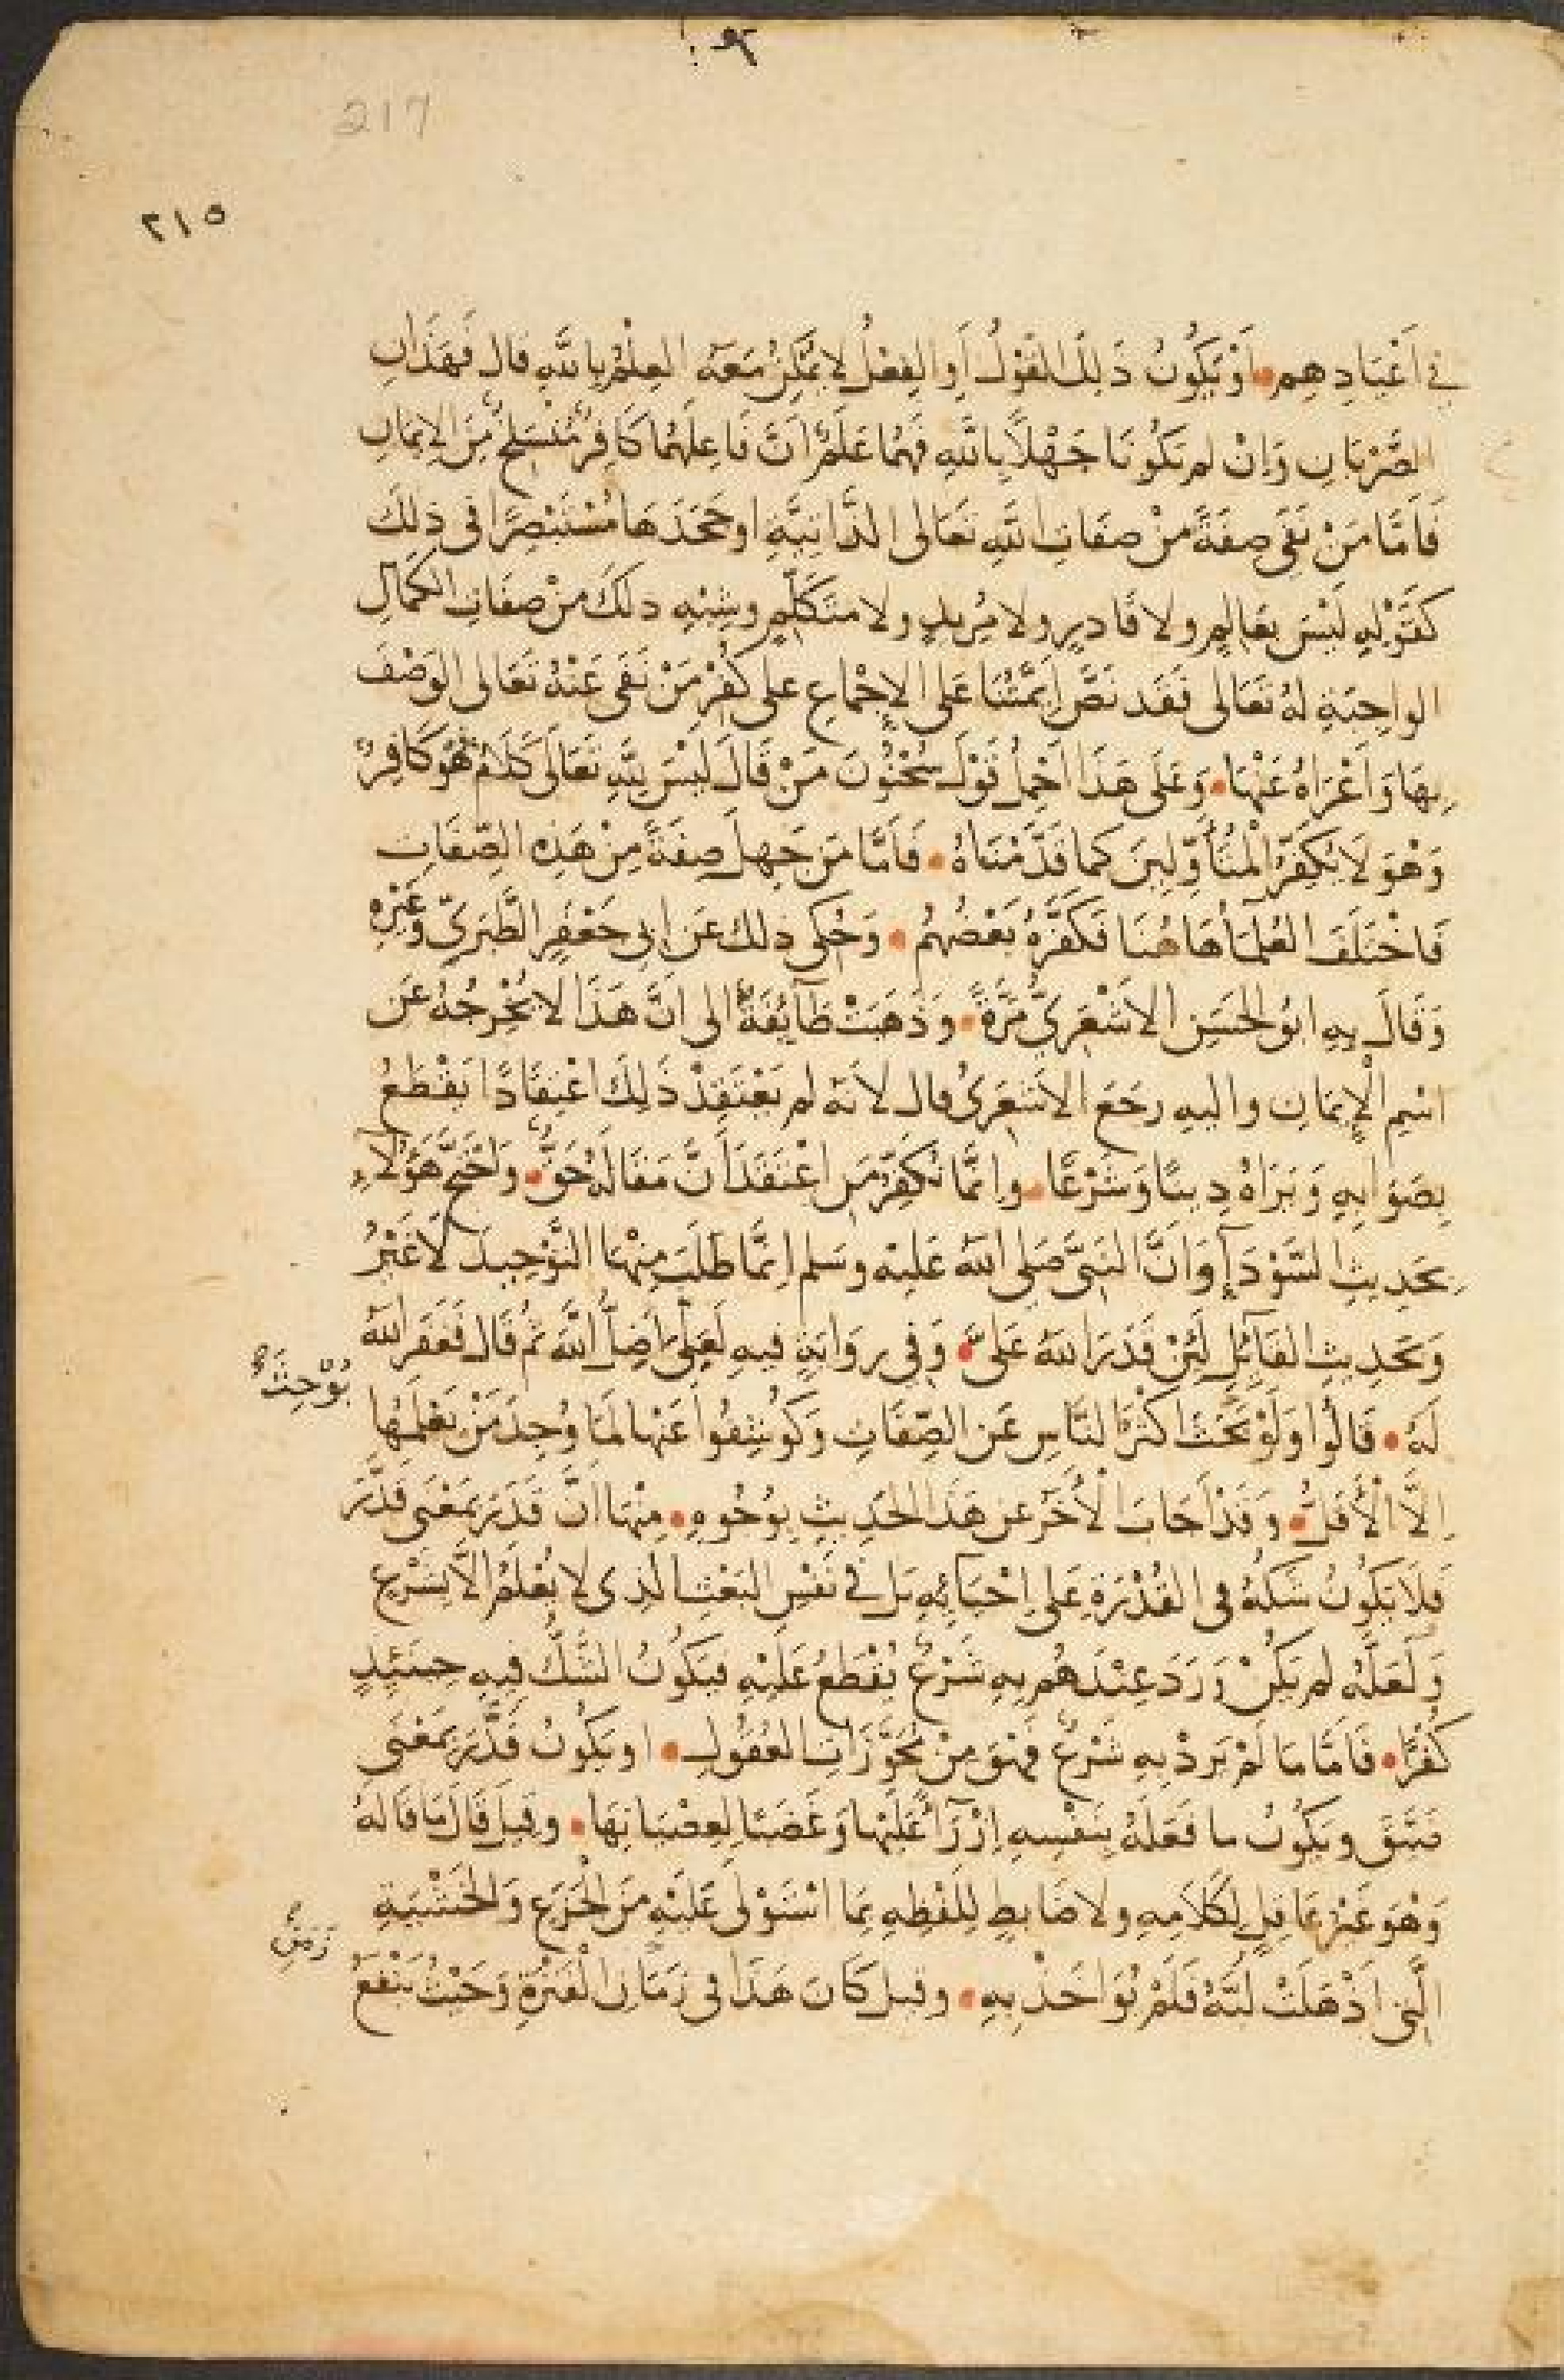 217
٢١٥
في أَعْيَادِهِم أَوْ يَكُونُ ذَلِكَ القَوْلُ أَوِ الفِعْلُ لا يُمْكِنُ مَعَهُ العِلْمُ بِاللّهِ قال فَهَذَانِ
الضَّرْبَانِ وَإِنْ لم يَكُونَا جَهْلًا بِاللّهِ فَهُمَا عَلَمٌ أَنَّ فَاعِلَهُمَا كَافِرٌ مُنْسَلِخٌ مِنَ الإيمَانِ
فَأَمَّا مَنْ نَفَى صِفَةً مِنْ صِفَاتِ اللّهِ تَعَالى الذَّاتِيَّةِ او جَحَدَهَا مُسْتَبْصِرًا فى ذلِكَ
كَقَوْلِهِ لَيْسَ بِعَالِمٍ ولا قَادِرٍ ولا مُرِيدٍ ولا متَكَلِّمٍ وشِبْهِ ذلكَ مِنْ صِفَاتِ الكَمَالِ
الواجِبَةِ لهُ تَعَالى فَقَد نَصَّ أَئِمَّتُنَا عَلى الإجْمَاعِ على كُفْرِ مَنْ نَفَى عَنْهُ تَعَالى الوَصْفَ
بِهَا وَأَعْرَاهُ عَنْهَا وَعَلَى هَذَا احْمِلْ قَوْلَ سُحْنُونَ مَنْ قَالَ لَيْسَ لِلّهِ تَعَالَى كَلَامٌ فَهُوَ كَافِرٌ
وَهْوَ لَا يُكَفِّرُ المُتَأَوِّلِينَ كما قَدَّمْنَاهُ فَأَمَّا مَن جَهِلَ صِفَةً مِنْ هَذِهِ الصِّفَاتِ
فَاخْتَلَفَ العُلَمَاُ هَاهُنَا فَكَفَّرَهُ بَعْضُهُم وَحُكِىَ ذلك عَن ابى جَعْفَرٍ الطَّبَرِيّ وغَيْرِهِ
وَقَالَ بِهِ ابُو الحَسَنِ الاَشْعَرِيُّ مَرَّةً وَذَهَبَتْ طَآئِفَةٌ الى انَّ هَذَا لا يُخْرِجُهُ عَن
اسْمِ الْإِيمَانِ واليهِ رجَعَ الاَشْعَرِىُ قال لاَنّهُ لم يَعْتَقِدْ ذَلِكَ اعْتِقَادًا يَقْطَعُ
بِصَوَابِهِ وَيَرَاهُ دِينًا وَشَرْعًا وانَّمَا نُكَفِّرُ مَنِ اعْتَقَدَ أَنَّ مَقَالَهُ حَقٌّ وَاحْتَجَّ هَؤُلَاءِ
بِحَدِيثِ السَّوْدَآءِ وَانَّ النَّبىَّ صَلى اللّهُ عَليْهِ وسَلم انَّمَا طَلَبَ مِنْهَا التَّوْحِيدَ لَا غَيْرُ
وَبحَدِيثِ القَآئِلِ لَئِنْ قَدَرَ اللّهُ عَلىَّ وَفِى رِوَايَةٍ فيهِ لَعَلِّى أَضِلُّ اللّهَ ثمَّ قَالَ فَغَفَرَ اللّهُ
بُوْحِثَ
لَهُ قَالُوا وَلَوْ بحُثَ اكْثَرُ النَّاسِ عَن الصِّفَاتِ وَكُوشِفُوا عَنْها لَمَا وُجِدَ مَنْ يَعْلَمُها
إِلَّا الْأَقَلُّ وَقَدْ أَجَابَ الْأَخَرُ عَن هَذَا الحَدِيثِ بِوُجُوهٍ مِنْهَا انَّ قَدَرَ بمَعْنَى قَدَّرَ
فَلَا يَكُونُ شَكُّهُ فِى القُدْرَةِ عَلى إِحْيَائِهِ بَل في نَفْسِ البَعْثِ الذِى لا يُعْلَمُ الَّا بِشَرْعٍ
وَلَعَلَّهُ لم يَكُنْ وَرَدَ عِنْدَهُم بِهِ شَرْعٌ يُقْطَعُ عَلَيْهِ فيَكُونُ الشَّكُّ فِيهِ حِينَئِذٍ
كُفْرًا فَامَّا مَا لَمْ يَرِدْ بِهِ شَرْعٌ فهْوَ مِنْ مُجَوَّزَاتِ العُقُولِ او يَكُونُ قَدَّرَ بمَعْنَى
ضَيَّقَ ويَكُونُ ما فَعَلَهُ بِنَفْسِهِ إِزْرَآءً عَلَيْهَا وَغَضَبًا لِعِصْيَانِهَا وقيلَ قَالَ مَا قَالَهُ
وَهْوَ غَيْرُ عَاقِلٍ لِكَلَامِهِ ولا ضَابِطٍ لِلَفْظِهِ بمَا اسْتَوْلى عَلَيْهِ مِنَ الْجَزَعِ وَالخَشْيَةِ
زَمَنِ
الَّتِى أَذْهَلَتْ لُبَّهُ فَلَمْ يُوَاخَذْ بِهِ وقيل كَانَ هَذَا فى زَمَانِ الفَتْرَةِ وَحَيْثُ يَنْفَعُ